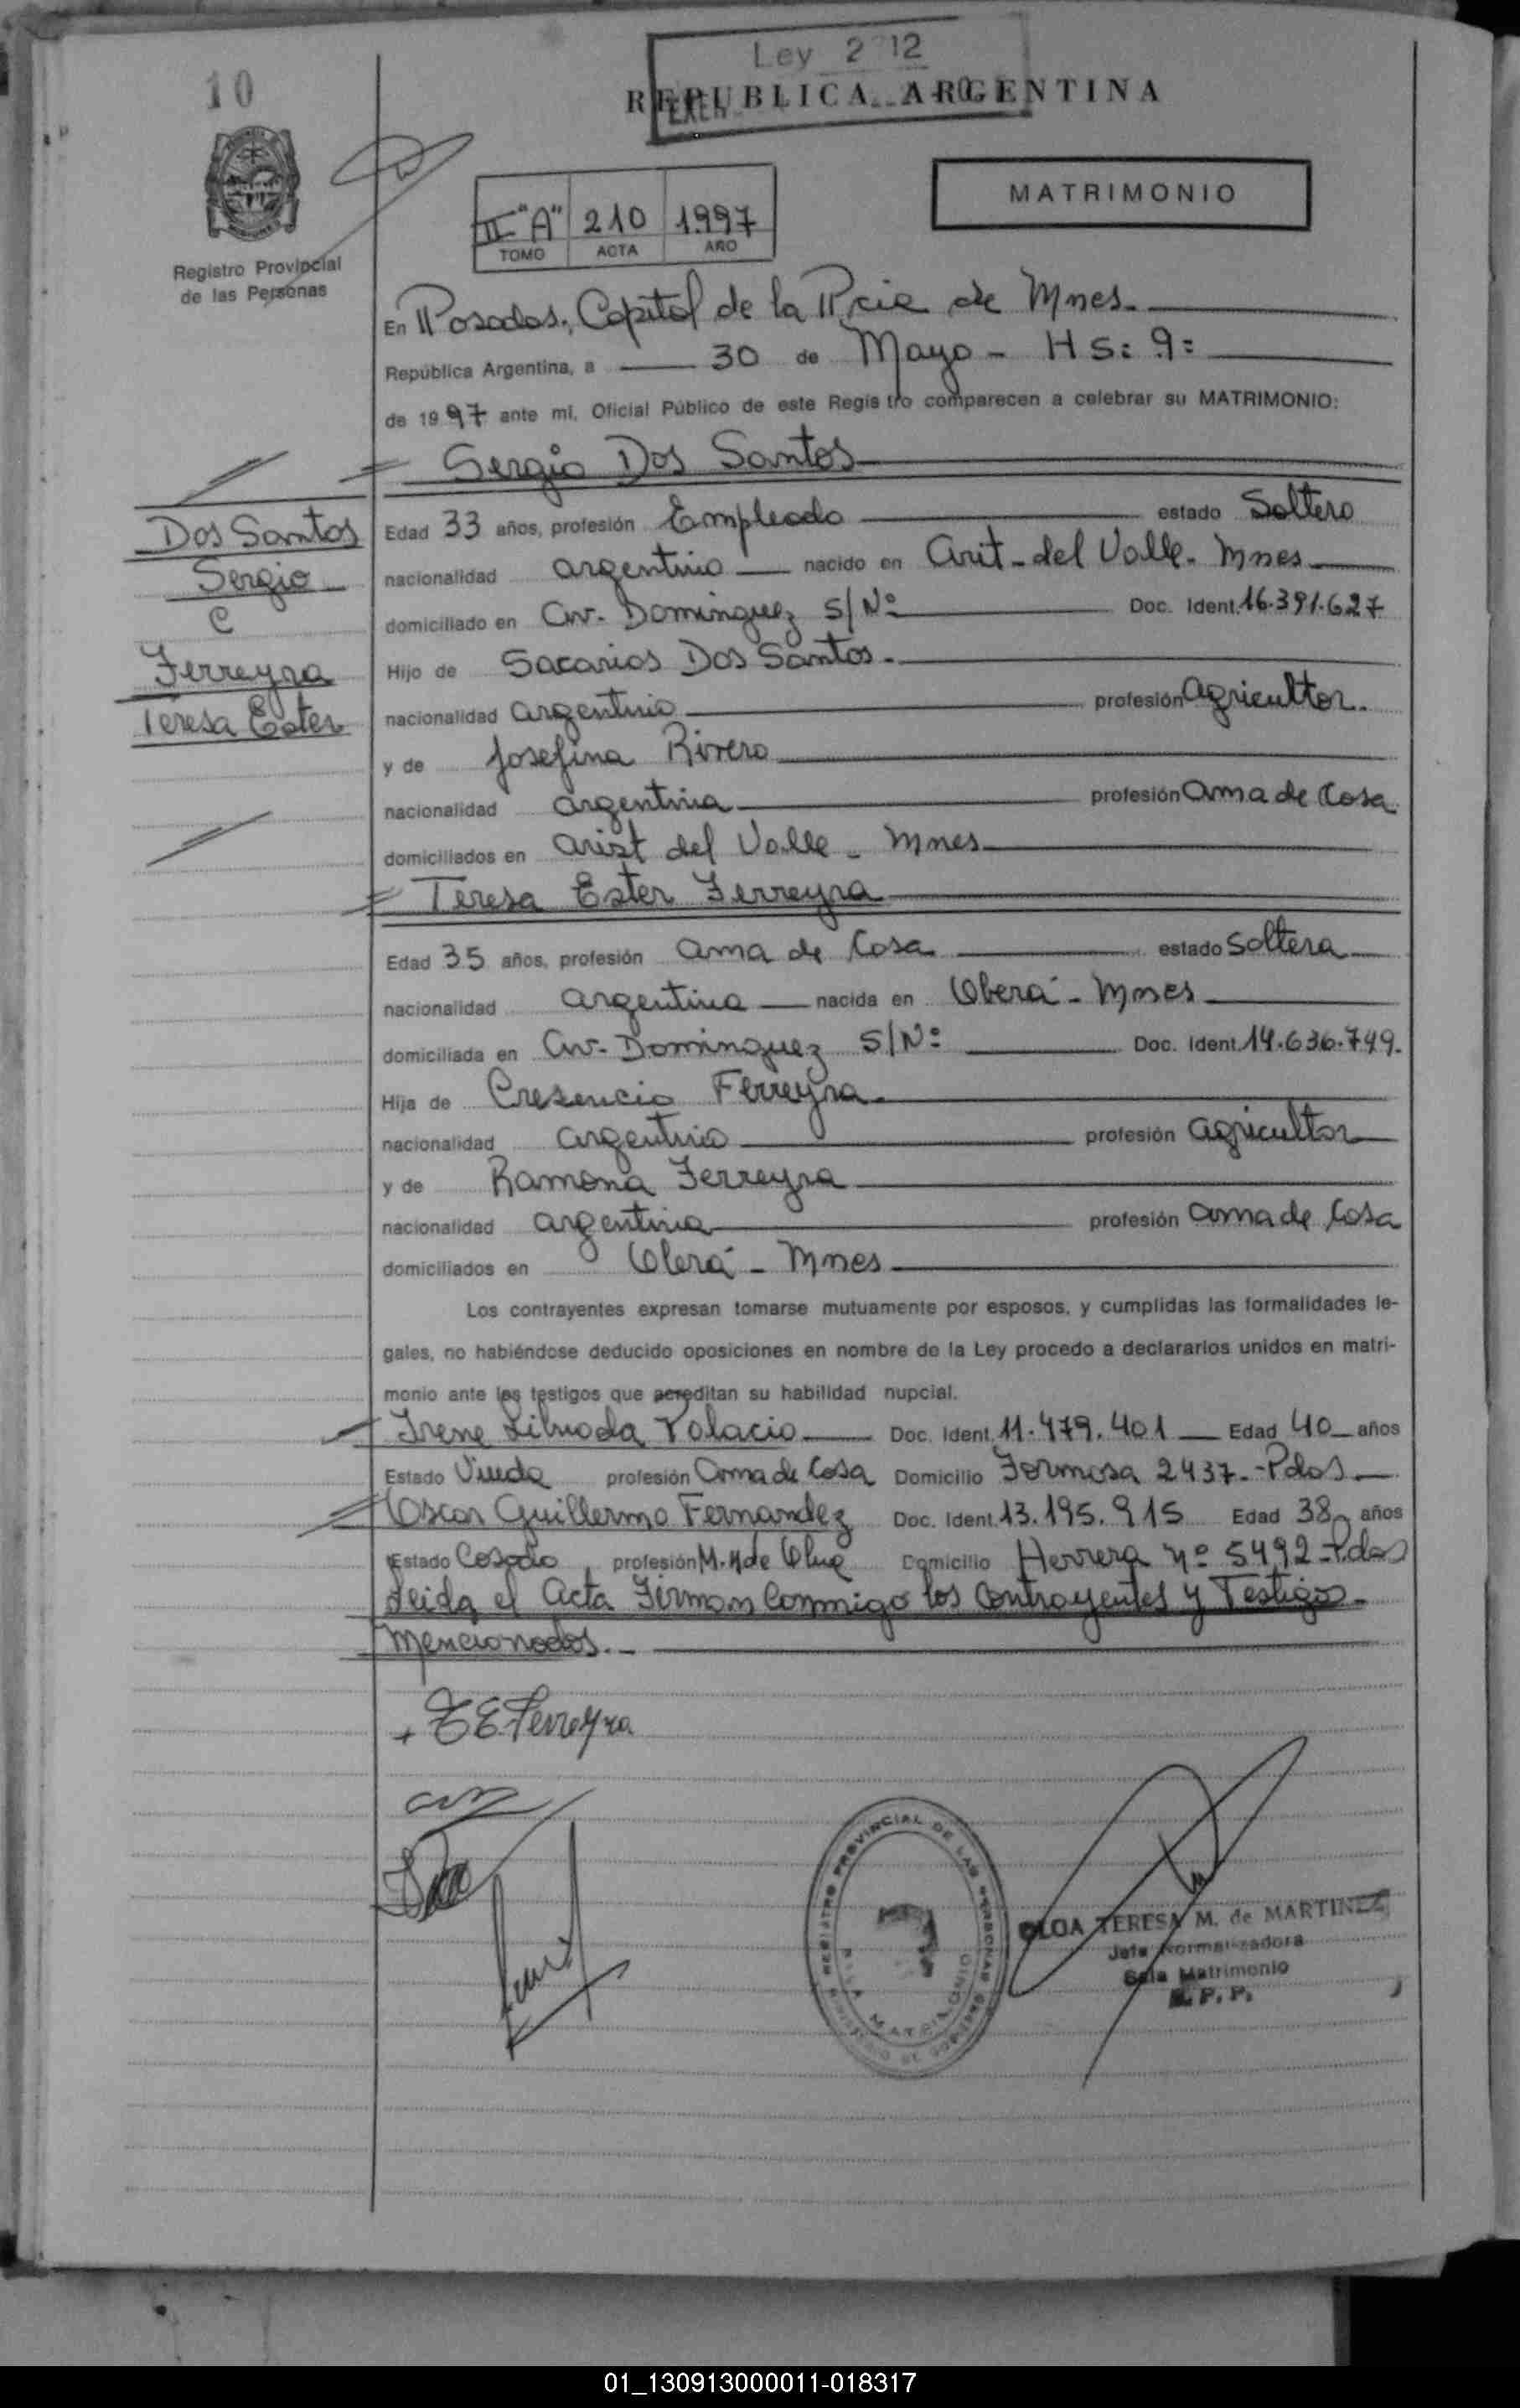 10
Ley 2712
REPUBLICA ARGENTINA
MATRIMONIO
II "A" 210 1997
TOMO ACTA AÑO
Registro Provincial
de las Personas
En Posadas, Capital de la Pcia de Mnes.
República Argentina, a 30 de Mayo - HS: 9=
de 1997 ante mi, Oficial Público de este Registro comparecen a celebrar su MATRIMONIO:
Sergio Dos Santos
Dos Santos
Sergio
C
Ferreyra
Teresa Ester
Edad 33 años, profesión Empleado estado Soltero
nacionalidad argentino nacido en Arit-del Valle. Mnes
domiciliado en Av. Dominguez S/Nº Doc. Ident. 16.391.627
Hijo de Sacarias Dos Santos.
nacionalidad argentino profesión agricultor.
y de Josefina Rivero
nacionalidad argentina profesión ama de Casa
domiciliados en Arist del Valle - Mnes
Teresa Ester Ferreyra
Edad 35 años, profesión ama de Casa estado Soltera
nacionalidad argentina nacida en Oberá - Mnes
domiciliada en Av. Dominguez S/Nº Doc. Ident. 14.636.749.
Hija de Cresencio Ferreyra.
nacionalidad argentino profesión agricultor
y de Ramona Ferreyra
nacionalidad argentina profesión ama de Casa
domiciliados en Oberá - Mnes
Los contrayentes expresan tomarse mutuamente por esposos, y cumplidas las formalidades le-
gales, no habiéndose deducido oposiciones en nombre de la Ley procedo a declararlos unidos en matri-
monio ante los testigos que acreditan su habilidad nupcial.
Irene Palacio Doc. Ident. 11.479.401 Edad 40 años
Estado Viuda profesión Ama de Casa Domicilio Formosa 2437.-Pdas
Oscar Guillermo Fernandez Doc. Ident. 13.195.915 Edad 38 años
Estado Casado profesión Domicilio Herrera nº 5492-Pdas
Leida el Acta Firman Conmigo los Contrayentes y Testigos
Mencionados.
T E Ferreyra
REGISTRO PROVINCIAL DE LAS PERSONAS
MINISTERIO DE GOBIERNO
SALA MATRIMONIO
OLGA TERESA M. de MARTINEZ
Jefa Normalizadora
Sala Matrimonio
R. P. P.
01_130913000011-018317